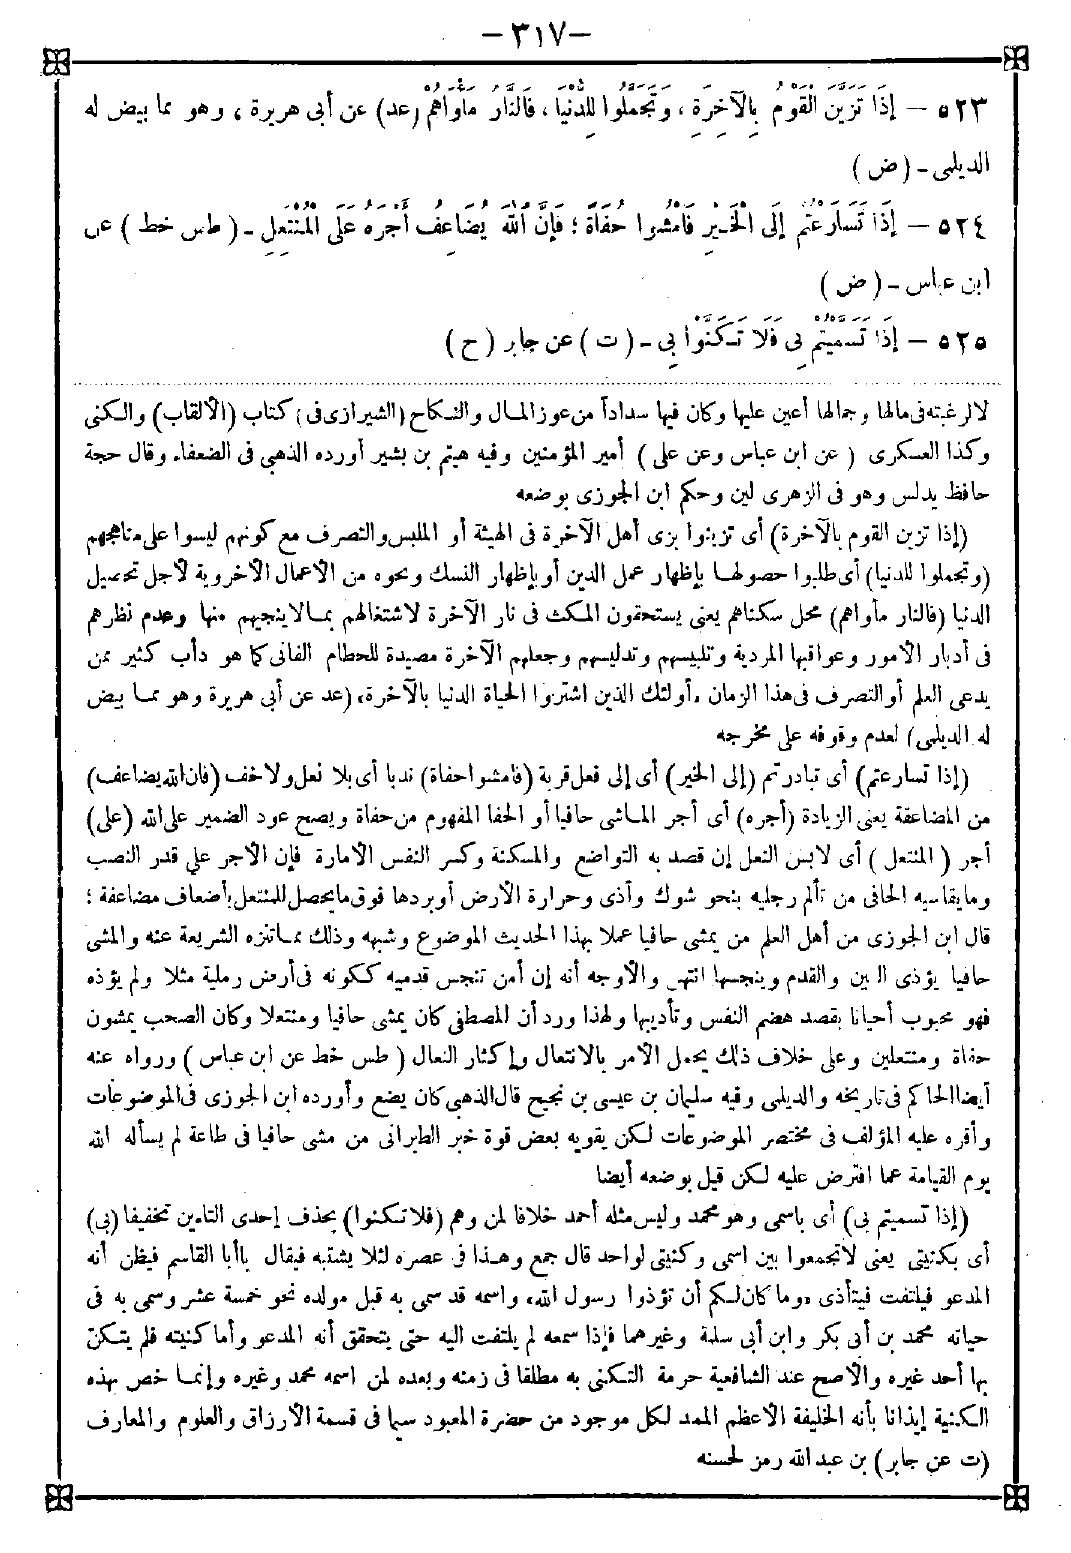 -٣١٧-
٥٢٣ - إِذَا تَزَيَّنَ الْقَوْمُ بِالْآخِرَةِ، وَتَجَمَّلُوا لِلدُّنْيَا، فَالنَّارُ مَأْوَاهُمْ (عد) عن أبى هريرة ، وهو مما بيض له
الديلمى - (ض)
٥٢٤ - إِذَا تَسَارَعْتُمْ إِلَى الْخَيْرِ فَامْشُوا حُفَاةً ؛ فَإِنَّ اللهَ يُضَاعِفُ أَجْرَهُ عَلَى الْمُنْتَعِلِ - (طس خط) عن
ابن عباس - (ض)
٥٢٥ - إِذَا تَسَمَّيْتُمْ بِى فَلَا تَكَنَّوْا بِى - (ت) عن جابر (ح)
لالرغبته فى مالها وجمالها أعين عليها وكان فيها سداداً من عوز المال والنكاح (الشيرازى فى) كتاب (الألقاب) والكنى
وكذا العسكرى (عن ابن عباس وعن على) أمير المؤمنين وفيه هيثم بن بشير أورده الذهبى فى الضعفاء وقال حجة
حافظ يدلس وهو فى الزهرى لين وحكم ابن الجوزى بوضعه
(إذا تزين القوم بالآخرة) أى تزينوا بزى أهل الآخرة فى الهيئة أو الملبس والتصرف مع كونهم ليسوا على مناهجهم
(وتجملوا للدنيا) أى طلبوا حصولها بإظهار عمل الدين أو بإظهار النسك ونحوه من الأعمال الأخروية لأجل تحصيل
الدنيا (فالنار مأواهم) محل سكناهم يعنى يستحقون المكث فى نار الآخرة لاشتغالهم بما لا ينجيهم منها وعدم نظرهم
فى أدبار الأمور وعواقبها المردية وتلبيسهم وتدليسهم وجعلهم الآخرة مصيدة للحطام الفانى كما هو دأب كثير ممن
يدعى العلم أو التصرف فى هذا الزمان «أولئك الذين اشتروا الحياة الدنيا بالآخرة» (عد عن أبى هريرة وهو مما بيض
له الديلمى) لعدم وقوفه على مخرجه
(إذا تسارعتم) أى تبادرتم (إلى الخير) أى إلى فعل قربة (فامشوا حفاة) ندبا أى بلا نعل ولا خف (فان الله يضاعف)
من المضاعفة يعنى الزيادة (أجره) أى أجر الماشى حافيا أو الحفا المفهوم من حفاة ويصح عود الضمير على الله (على)
أجر (المنتعل) أى لابس النعل إن قصد به التواضع والمسكنة وكسر النفس الأمارة فإن الأجر على قدر النصب
وما يقاسيه الحافى من تألم رجليه بنحو شوك وأذى وحرارة الأرض أو بردها فوق ما يحصل للمنتعل بأضعاف مضاعفة ؛
قال ابن الجوزى من أهل العلم من يمشى حافيا عملا بهذا الحديث الموضوع وشبهه وذلك مما تنزه الشريعة عنه والمشى
حافيا يؤذى العين والقدم وينجسها انتهى والأوجه أنه إن أمن تنجس قدميه ككونه فى أرض رملية مثلا ولم يؤذه
فهو محبوب أحيانا بقصد هضم النفس وتأديبها ولهذا ورد أن المصطفى كان يمشى حافيا ومنتعلا وكان الصحب يمشون
حفاة ومنتعلين وعلى خلاف ذلك يحمل الأمر بالانتعال وإكثار النعال (طس خط عن ابن عباس) ورواه عنه
أيضا الحاكم فى تاريخه والديلمى وفيه سليمان بن عيسى بن نجيح قال الذهبى كان يضع وأورده ابن الجوزى فى الموضوعات
وأقره عليه المؤلف فى مختصر الموضوعات لكن يقويه بعض قوة خبر الطبرانى من مشى حافيا فى طاعة لم يسأله الله
يوم القيامة عما افترض عليه لكن قيل بوضعه أيضا
(إذا تسميتم بى) أى باسمى وهو محمد وليس مثله أحمد خلافا لمن وهم (فلا تكنوا) بحذف إحدى التاءين تخفيفا (بى)
أى بكنيتى يعنى لا تجمعوا بين اسمى وكنيتى لواحد قال جمع وهذا فى عصره لئلا يشتبه فيقال ياأبا القاسم فيظن أنه
المدعو فيلتفت فيتأذى «وما كان لكم أن تؤذوا رسول الله» واسمه قد سمى به قبل مولده نحو خمسة عشر وسمى به فى
حياته محمد بن أبى بكر وابن أبى سلمة وغيرهما فإذا سمعه لم يلتفت اليه حتى يتحقق أنه المدعو وأما كنيته فلم يتكن
بها أحد غيره والأصح عند الشافعية حرمة التكنى به مطلقا فى زمنه وبعده لمن اسمه محمد وغيره وإنما خص بهذه
الكنية إيذانا بأنه الخليفة الأعظم الممد لكل موجود من حضرة المعبود سيما فى قسمة الأرزاق والعلوم والمعارف
(ت عن جابر) بن عبد الله رمز لحسنه